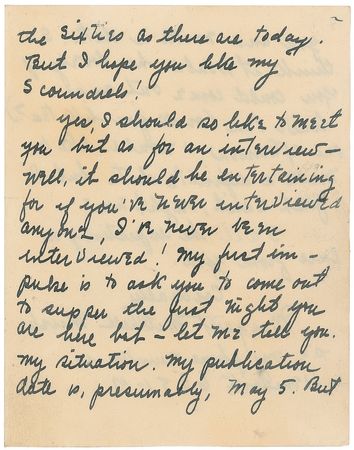 the Sixties as there are today.
But I hope you like my
Scoundrels!
yes, I should so like to meet
you but as for an interview—
Well, it should be entertaining
for if you've never interviewed
anyone, I've never been
interviewed! My first im-
pulse is to ask you to come out
to supper the first night you
are here but — let me tell you
my situation. My publication
date is, presumably, May 5. But